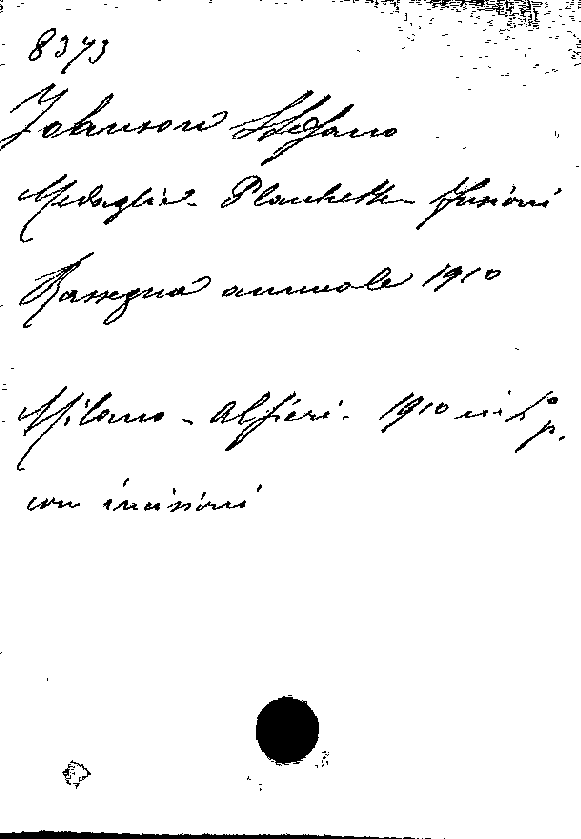 8373
Johnson Stefano
Medaglie - Planchette - fusioni
Rassegna annuale 1910
Milano - Alfieri - 1910 in
con incisioni